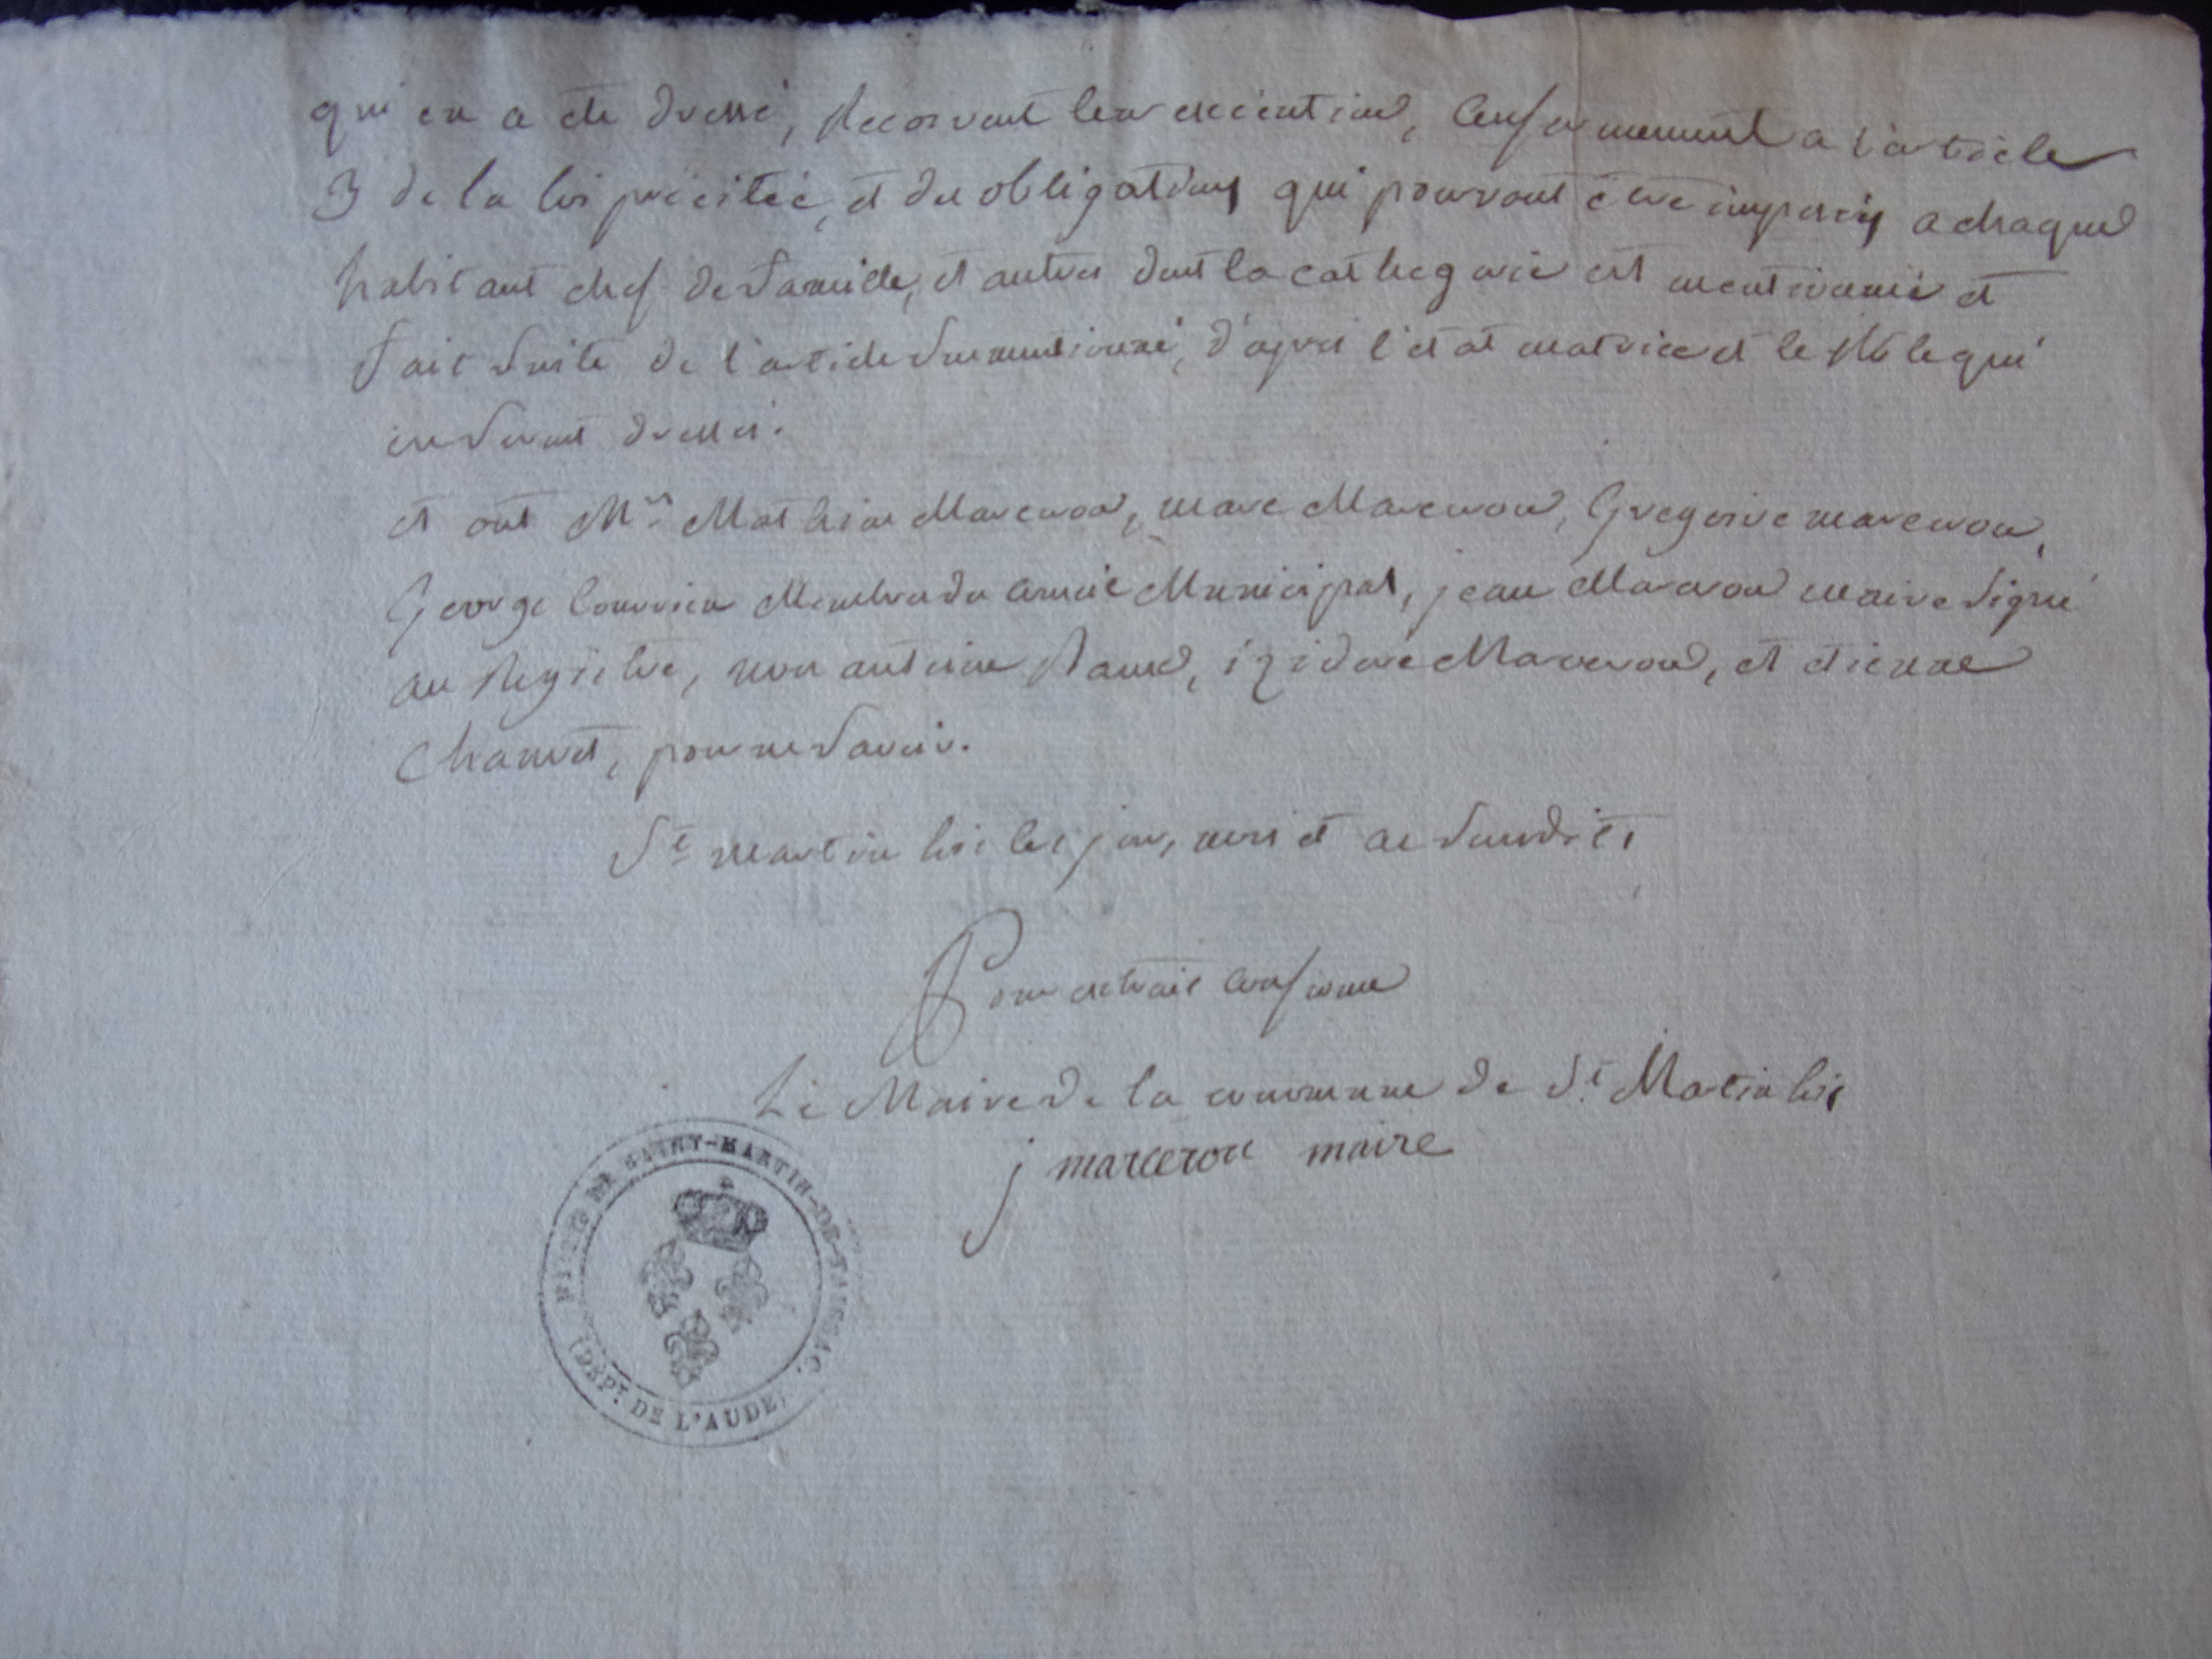 qui en a été dressé, Recoivent leur execution, Conformement a l'article
3 de la loi précitée, et des obligations qui pourront être imposées a chaque
habitant chef de famille, et autres dont la cathegorie est mentionnée et
fait suite de l'article susmentionné, d'après l'etat matrice et le Rôle qui
en seront dressés.
et ont Mrs Mathieu Marcerou, marc Marcerou, Gregoire marcerou,
George Membres du Conseil Municipal, jean Marcerou maire signé
au Registre, non antoine izidore Marcerou, et etienne
Chauvet, pour ne savoir.
St martin lis les jour, mois et an susdits,
Pour extrait conforme
Le Maire de la commune de St Martin lis
j marcerou maire
MAIRIE DE SAINT-MARTIN-DE-TAISSAC.
(DÉPT. DE L'AUDE)